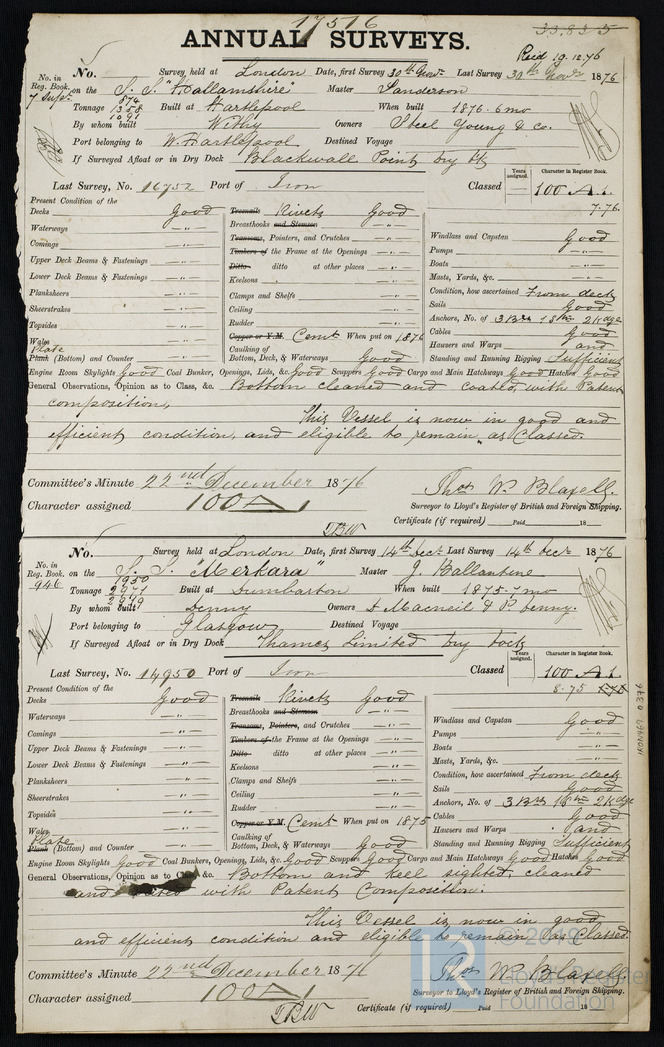 17516
33,835
ANNUAL SURVEYS.
Recd 19.12.76
No. Survey held at London Date, first Survey 30th Novr Last Survey 30th Novr 1876
No. in Reg. Book. on the S.S. "Hallamshire" Master Sanderson
7 Supt
874
Tonnage 1358 Built at Hartlepool When built 1876. 6 mo
1091
By whom built Withy Owners Steel Young & Co.
Port belonging to W. Hartlepool Destined Voyage
If Surveyed Afloat or in Dry Dock Blackwall Point Dry Dk
Last Survey, No. 16752 Port of Iron Classed Years assigned. Character in Register Book. 100 A.1.
7-76.
Present Condition of the
Decks Good Treenails Rivets Good
Waterways -"- Breasthooks and Stemson -"- Windlass and Capstan Good
Comings -"- Transoms, Pointers, and Crutches -"- Pumps -"-
Upper Deck Beams & Fastenings -"- Timbers of the Frame at the Openings -"- Boats -"-
Lower Deck Beams & Fastenings -"- Ditto ditto at other places -"- Masts, Yards, &c. -"-
Planksheers -"- Keelsons -"- Condition, how ascertained From deck
Sheerstrakes -"- Clamps and Shelfs -"- Sails Good
Topsides -"- Ceiling -"- Anchors, No. of 3 Brs 1 Stm 2 Kdge
Wales -"- Rudder -"- Cables Good
Plate Copper or Y.M. Cemt When put on 1876 Hawsers and Warps and
Plank (Bottom) and Counter -"- Caulking of Bottom, Deck, & Waterways Good Standing and Running Rigging Sufficient
Engine Room Skylights Good Coal Bunker, Openings, Lids, &c. Good Scuppers Good Cargo and Main Hatchways Good Hatches Good
General Observations, Opinion as to Class, &c. Bottom cleaned and coated with Patent
composition,
This Vessel is now in good and
efficient condition, and eligible to remain as Classed.
Committee's Minute 22nd December 1876
Character assigned 100A1
Thos W. Blaxell.
Surveyor to Lloyd's Register of British and Foreign Shipping.
Certificate (if required) Paid 18
TBW
No. Survey held at London Date, first Survey 14th Decr Last Survey 14th Decr 1876
No. in Reg. Book. on the S.S. "Merkara" Master J. Ballantine
946
1930
Tonnage 2971 Built at Dumbarton When built 1875. 7 mo
By whom built Denny Owners D Macneil & P. Denny.
Port belonging to Glasgow Destined Voyage
If Surveyed Afloat or in Dry Dock Thames Limited Dry Dock
Last Survey, No. 14950 Port of Iron Classed Years assigned. Character in Register Book. 100 A.1.
8-75
Present Condition of the
Decks Good Treenails Rivets Good
Waterways -"- Breasthooks and Stemson -"- Windlass and Capstan Good
Comings -"- Transoms, Pointers, and Crutches -"- Pumps -"-
Upper Deck Beams & Fastenings -"- Timbers of the Frame at the Openings -"- Boats -"-
Lower Deck Beams & Fastenings -"- Ditto ditto at other places -"- Masts, Yards, &c. -"-
Planksheers -"- Keelsons -"- Condition, how ascertained From deck
Sheerstrakes -"- Clamps and Shelfs -"- Sails Good
Topsides -"- Ceiling -"- Anchors, No. of 3 Brs 1 Stm 2 Kdge
Wales -"- Rudder -"- Cables Good
Plate Copper or Y.M. Cemt When put on 1875 Hawsers and Warps and
Plank (Bottom) and Counter -"- Caulking of Bottom, Deck, & Waterways Good Standing and Running Rigging Sufficient
Engine Room Skylights Good Coal Bunkers, Openings, Lids, &c. Good Scuppers Good Cargo and Main Hatchways Good Hatches Good
General Observations, Opinion as to Class, &c. Bottom and keel sighted, cleaned
and coated with Patent Composition.
This Vessel is now in good
and efficient condition and eligible to remain as Classed.
Committee's Minute 22nd December 1876
Character assigned 100A1
Thos W. Blaxell
Surveyor to Lloyd's Register of British and Foreign Shipping.
Certificate (if required) Paid 18
TBW
© 2019
Lloyd's Register
Foundation